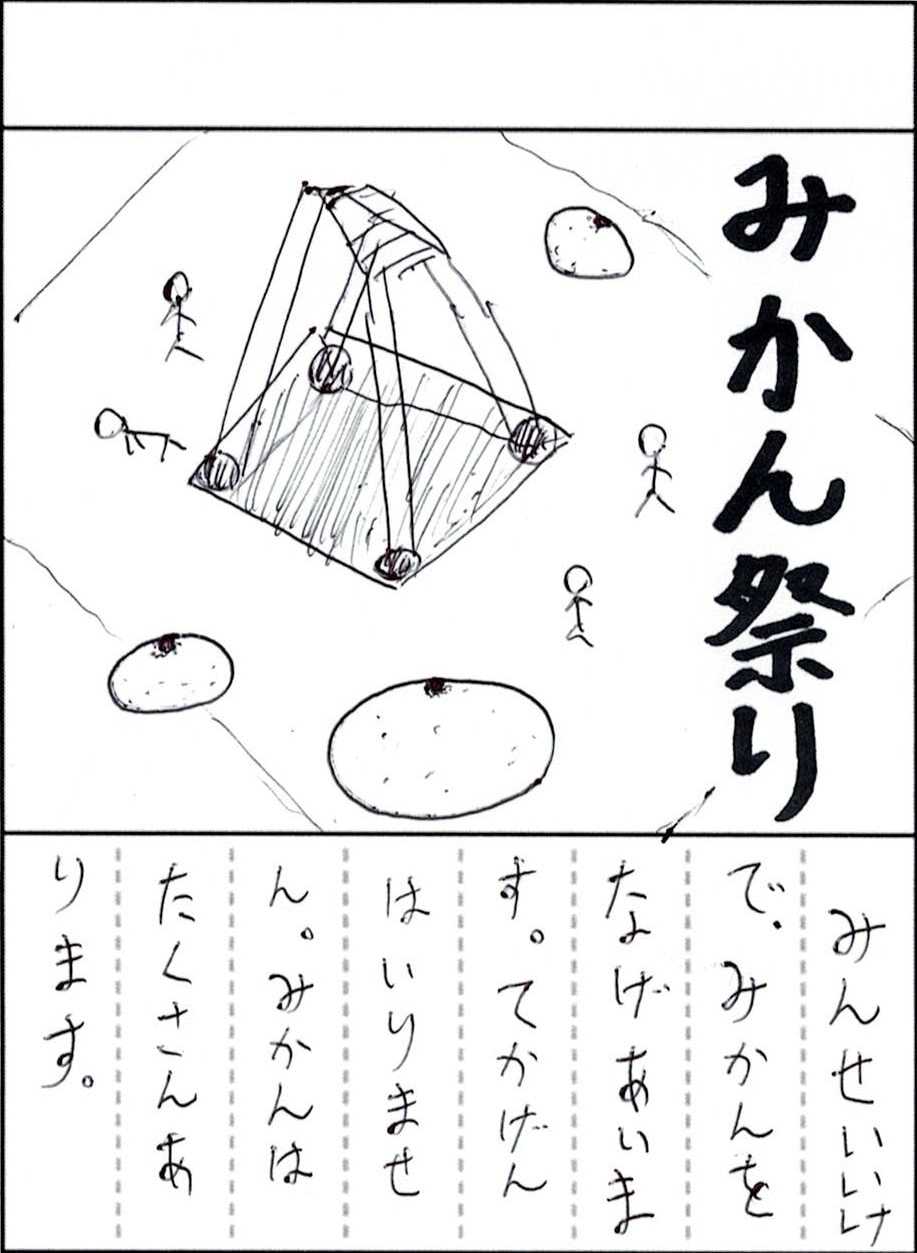 みかん祭り
みんせいいけ
で、みかんを
なげあいま
す。てかげん
はいりませ
ん。みかんは
たくさんあ
ります。